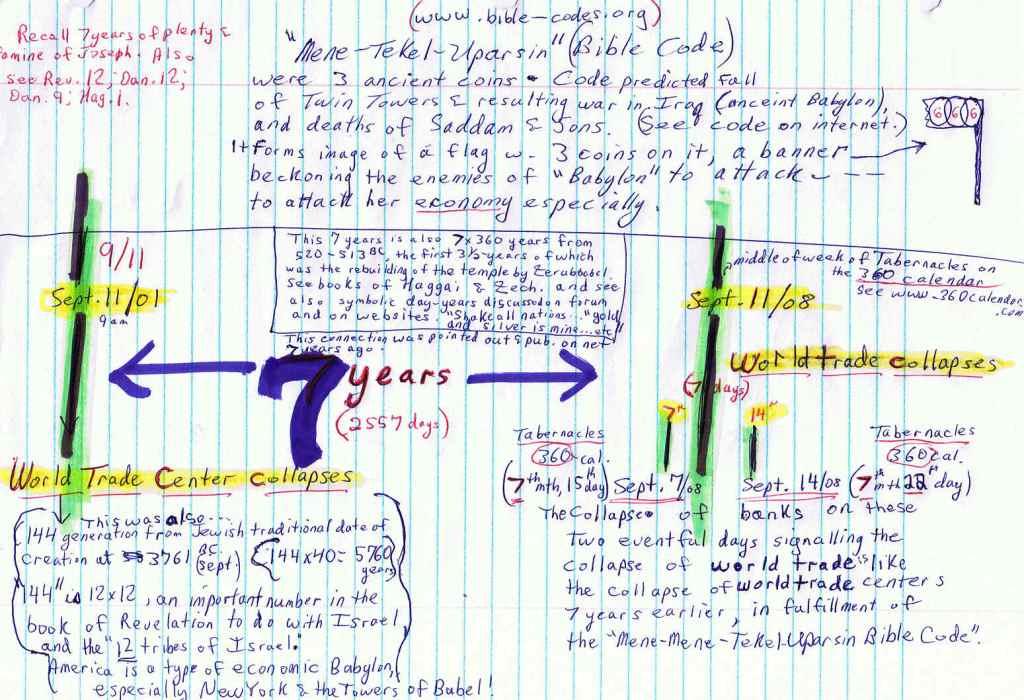 (www.bible-codes.org)
Recall 7 years of plenty &
famine of Joseph. Also
see Rev. 12; Dan. 12;
Dan. 9; Hag. 1.
"Mene-Tekel-Uparsin" (Bible Code)
were 3 ancient coins - Code predicted Fall
of Twin Towers & resulting war in Iraq (anceint Babylon),
and deaths of Saddam & Sons. (See code on internet.)
It forms image of a flag w. 3 coins on it, a banner
beckoning the enemies of "Babylon" to attack - --
to attack her economy especially.
666
9/11
Sept. 11/01
9 am
This 7 years is also 7x360 years from
520-513 BC, the first 3½-years of which
was the rebuilding of the temple by Zerubbabel.
see books of Haggai & Zech. and see
also symbolic day-years discussed on forum
and on websites. "Shake all nations..."gold
and silver is mine...etc"
This connection was pointed out & pub. on net
7 years ago.
middle of week of Tabernacles on
the 360 calendar
see www.360calendar
.com
Sept. 11/08
World trade collapses
7 years
(2557 days)
(7 days)
7th
14th
World Trade Center collapses
Tabernacles
360 cal.
(7th mth, 15th day) Sept. 7/08
Tabernacles
360 cal.
Sept. 14/08 (7th mth 22nd day)
This was also...
144 generation from Jewish traditional date of
creation at 3761 BC (Sept.) (144x40=5760 years)
"144" is 12x12, an important number in the
book of Revelation to do with Israel
and the "12 tribes of Israel.
America is a type of economic Babylon,
especially New York & the Towers of Babel!
The Collapse of banks on these
Two eventful days signalling the
collapse of world trade is like
the collapse of world trade centers
7 years earlier, in fulfillment of
the "Mene-Mene-Tekel-Uparsin Bible Code".